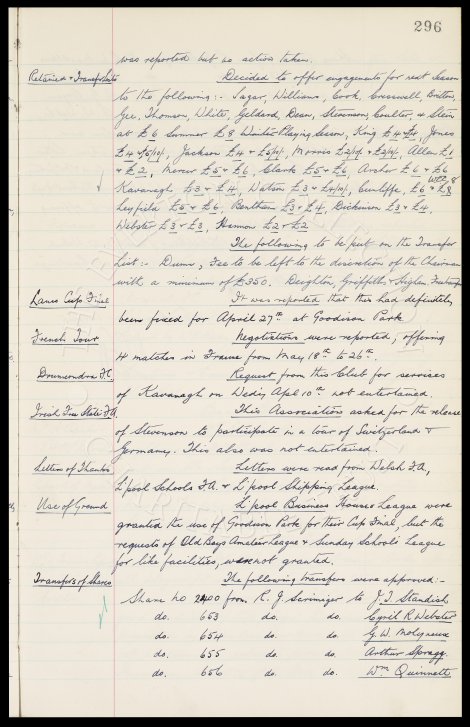 296
was reported but no action taken.
Retained & Transfer Lists Decided to offer engagements for next season
to the following:- Sagar, Williams, Cook, Cresswell, Britton,
Gee, Thomson, White, Geldard, Dean, Stevenson, Coulter, & Stein
at £6 Summer £8 Winter Playing Season, King £4 & £4, Jones
£4 & £5/10/-, Jackson £4 & £5/10/-, Morris £2/10/- & £2/10/-, Allen £1
& £2, Mercer £5 & £6, Clark £5 & £6, Archer £6 & £6
Kavanagh £3 & £4, Watson £3 & £4/10/-, Cunliffe, £6 & £8
Leyfield £5 & £6, Bentham £3 & £4, Dickinson £3 & £4,
Webster £3 & £3, Hannon £2 & £2
The following to be put on the Transfer
List:- Dunn, Fee to be left to the discretion of the Chairman
with a minimum of £350. Deighton, Griffiths &
Lancs Cup Final It was reported that this had definitely
been fixed for April 27th at Goodison Park
French Tour Negotiations were reported, offering
4 matches in France from May 18th to 26th.
Drumcondra F.C. Request from this Club for services
of Kavanagh on Wedy, Apl 10th not entertained.
Irish Free State F.A. This Association asked for the release
of Stevenson to participate in a tour of Switzerland &
Germany. This also was not entertained.
Letters of Thanks Letters were read from Welsh F.A,
L'pool Schools F.A. & L'pool Shipping League.
Use of Ground L'pool Business Houses League were
granted the use of Goodison Park for their Cup Final, but the
requests of Old Boys Amateur League & Sunday Schools League
for like facilities, were not granted.
Transfers of Shares The following transfers were approved:-
Share No 2400 from R. J. Scrimiger to J. J. Standish
do. 653 do. do. Cyril R Webster
do. 654 do. do. G. W. Molyneux
do. 655 do. do. Arthur Spragg
do. 656 do. do. Wm Quinnett